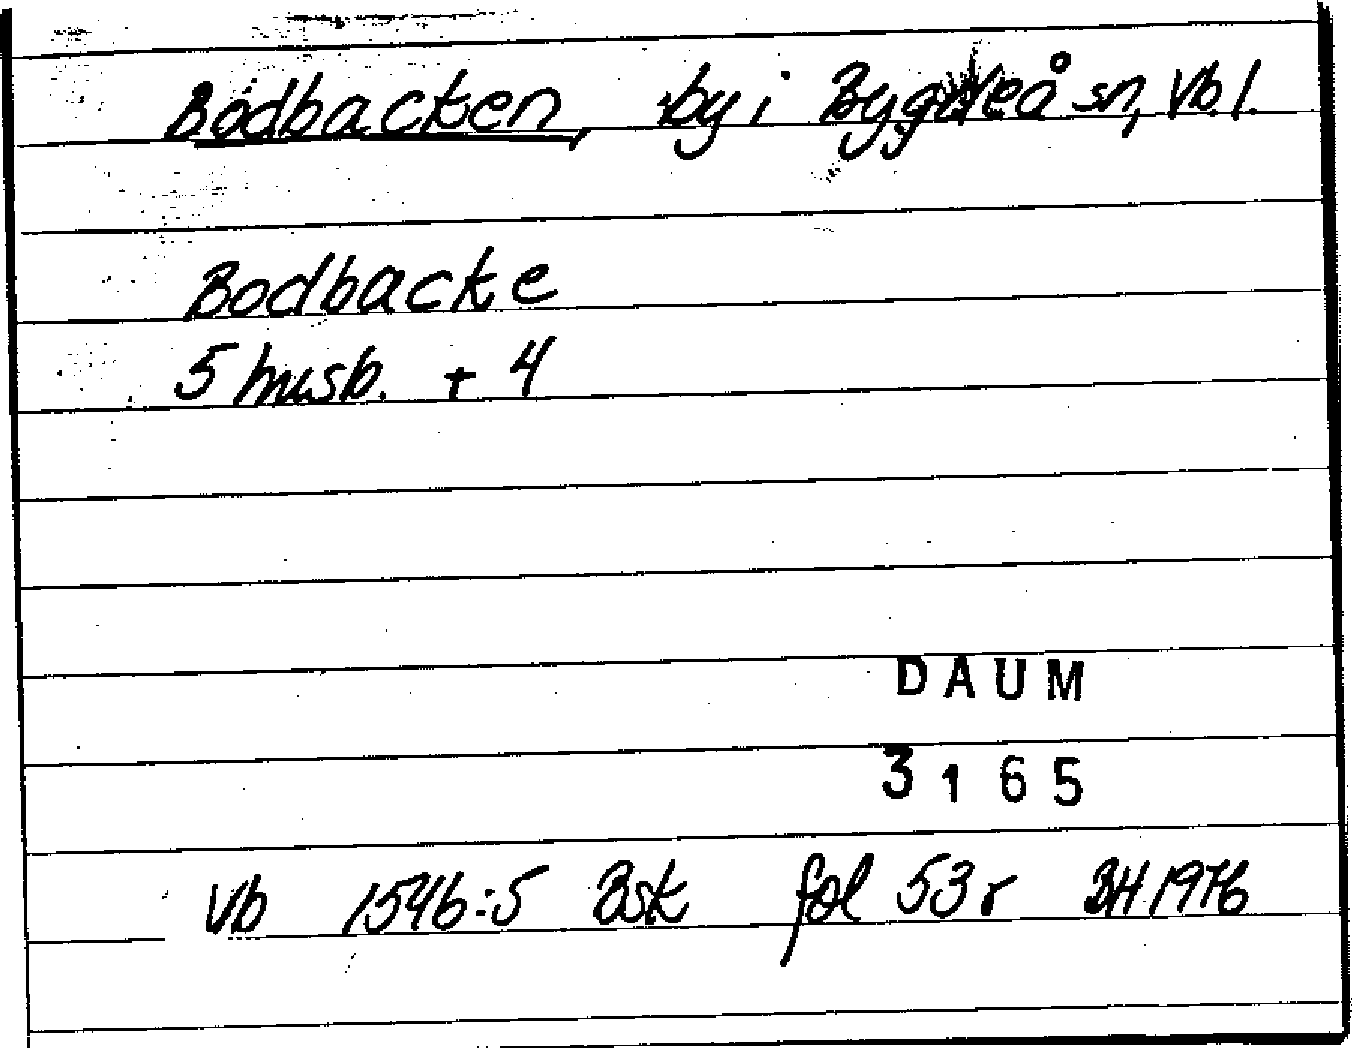 Bodbacken, by i Bygdeå sn, Vb l.
Bodbacke
5 husb. + 4
DAUM
3165
Vb 1546:5 Bsk fol 53r BH 1976